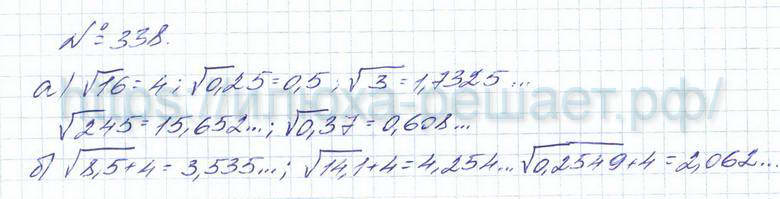 № 338.
а) √16 = 4 ; √0,25 = 0,5 ; √3 = 1,7325...
https://илюха-решает.рф/
√245 = 15,652... ; √0,37 = 0,608...
б) √8,5+4 = 3,535... ; √14,1+4 = 4,254... √0,2549+4 = 2,062...